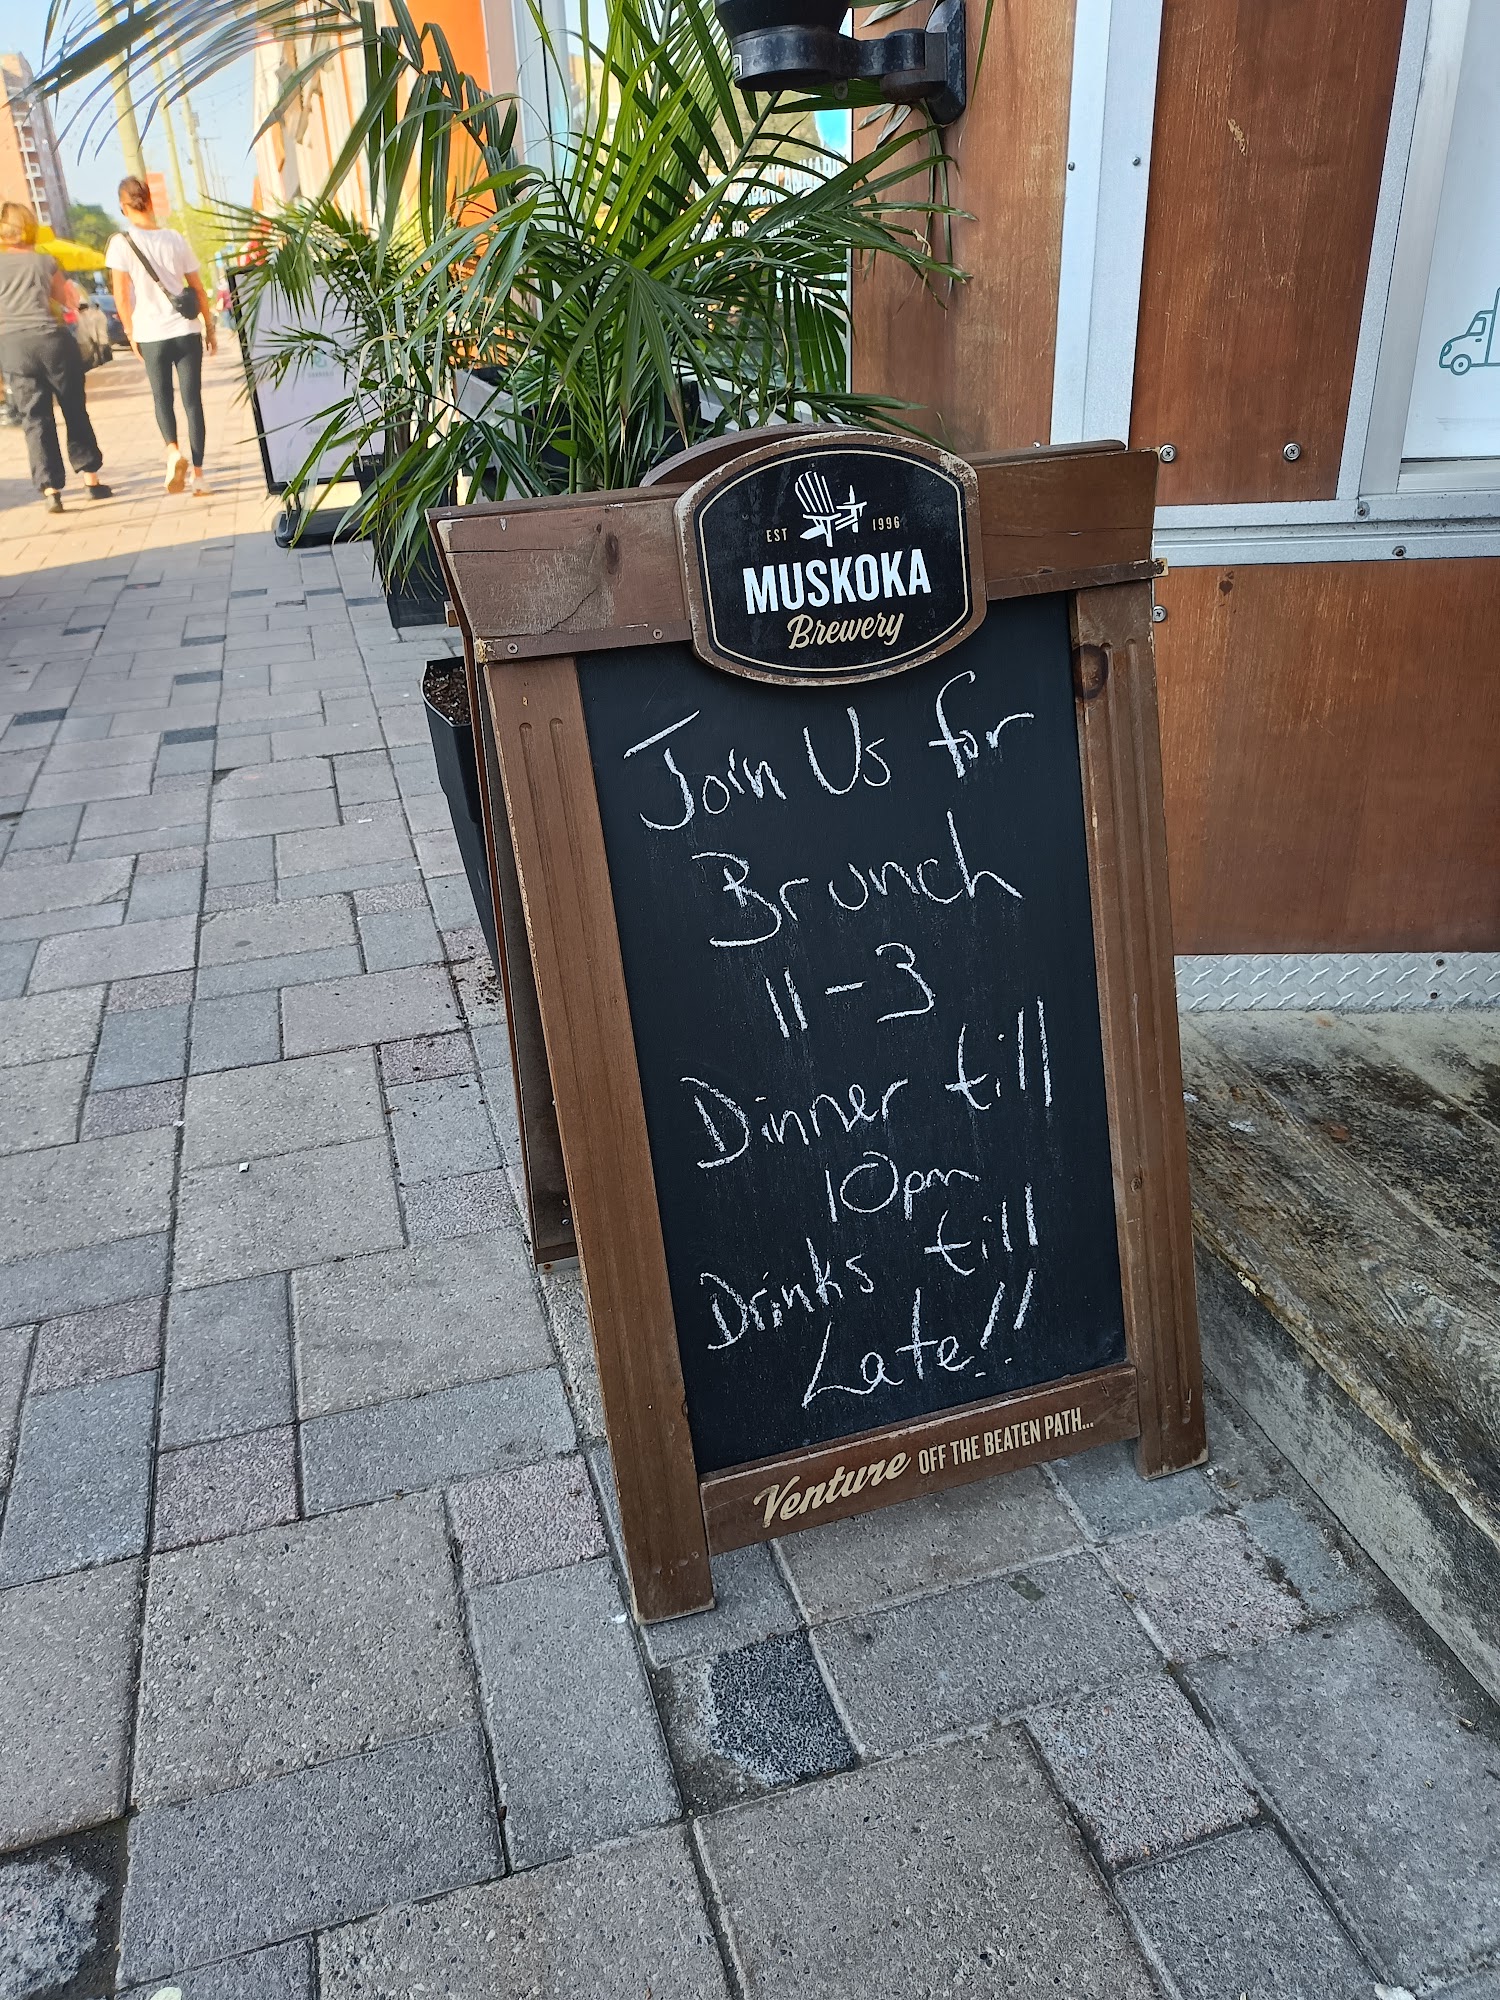 EST 1996
MUSKOKA
Brewery
Join Us for
Brunch
11-3
Dinner till
10pm
Drinks till
Late!!
Venture OFF THE BEATEN PATH...